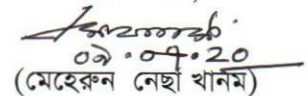 ০৯.০৭.২০
(মেহেরুন নেছা খানম)